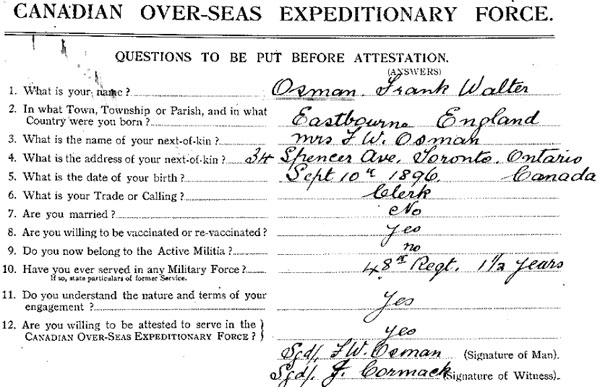 CANADIAN OVER-SEAS EXPEDITIONARY FORCE.
QUESTIONS TO BE PUT BEFORE ATTESTATION.
(ANSWERS)
1. What is your name? Osman Frank Walter
2. In what Town, Township or Parish, and in what
Country were you born? Eastbourne England
3. What is the name of your next-of-kin? Mrs F.W. Osman
4. What is the address of your next-of-kin? 34 Spencer Ave. Toronto. Ontario
5. What is the date of your birth? Sept 10th 1896. Canada
6. What is your Trade or Calling? Clerk
7. Are you married? No
8. Are you willing to be vaccinated or re-vaccinated? yes
9. Do you now belong to the Active Militia? no
10. Have you ever served in any Military Force? 48th Regt. 1 1/2 years
If so, state particulars of former Service.
11. Do you understand the nature and terms of your
engagement? yes
12. Are you willing to be attested to serve in the
CANADIAN OVER-SEAS EXPEDITIONARY FORCE? yes
Sgd/. F.W. Osman (Signature of Man).
Sgd/. J. Cormack (Signature of Witness).